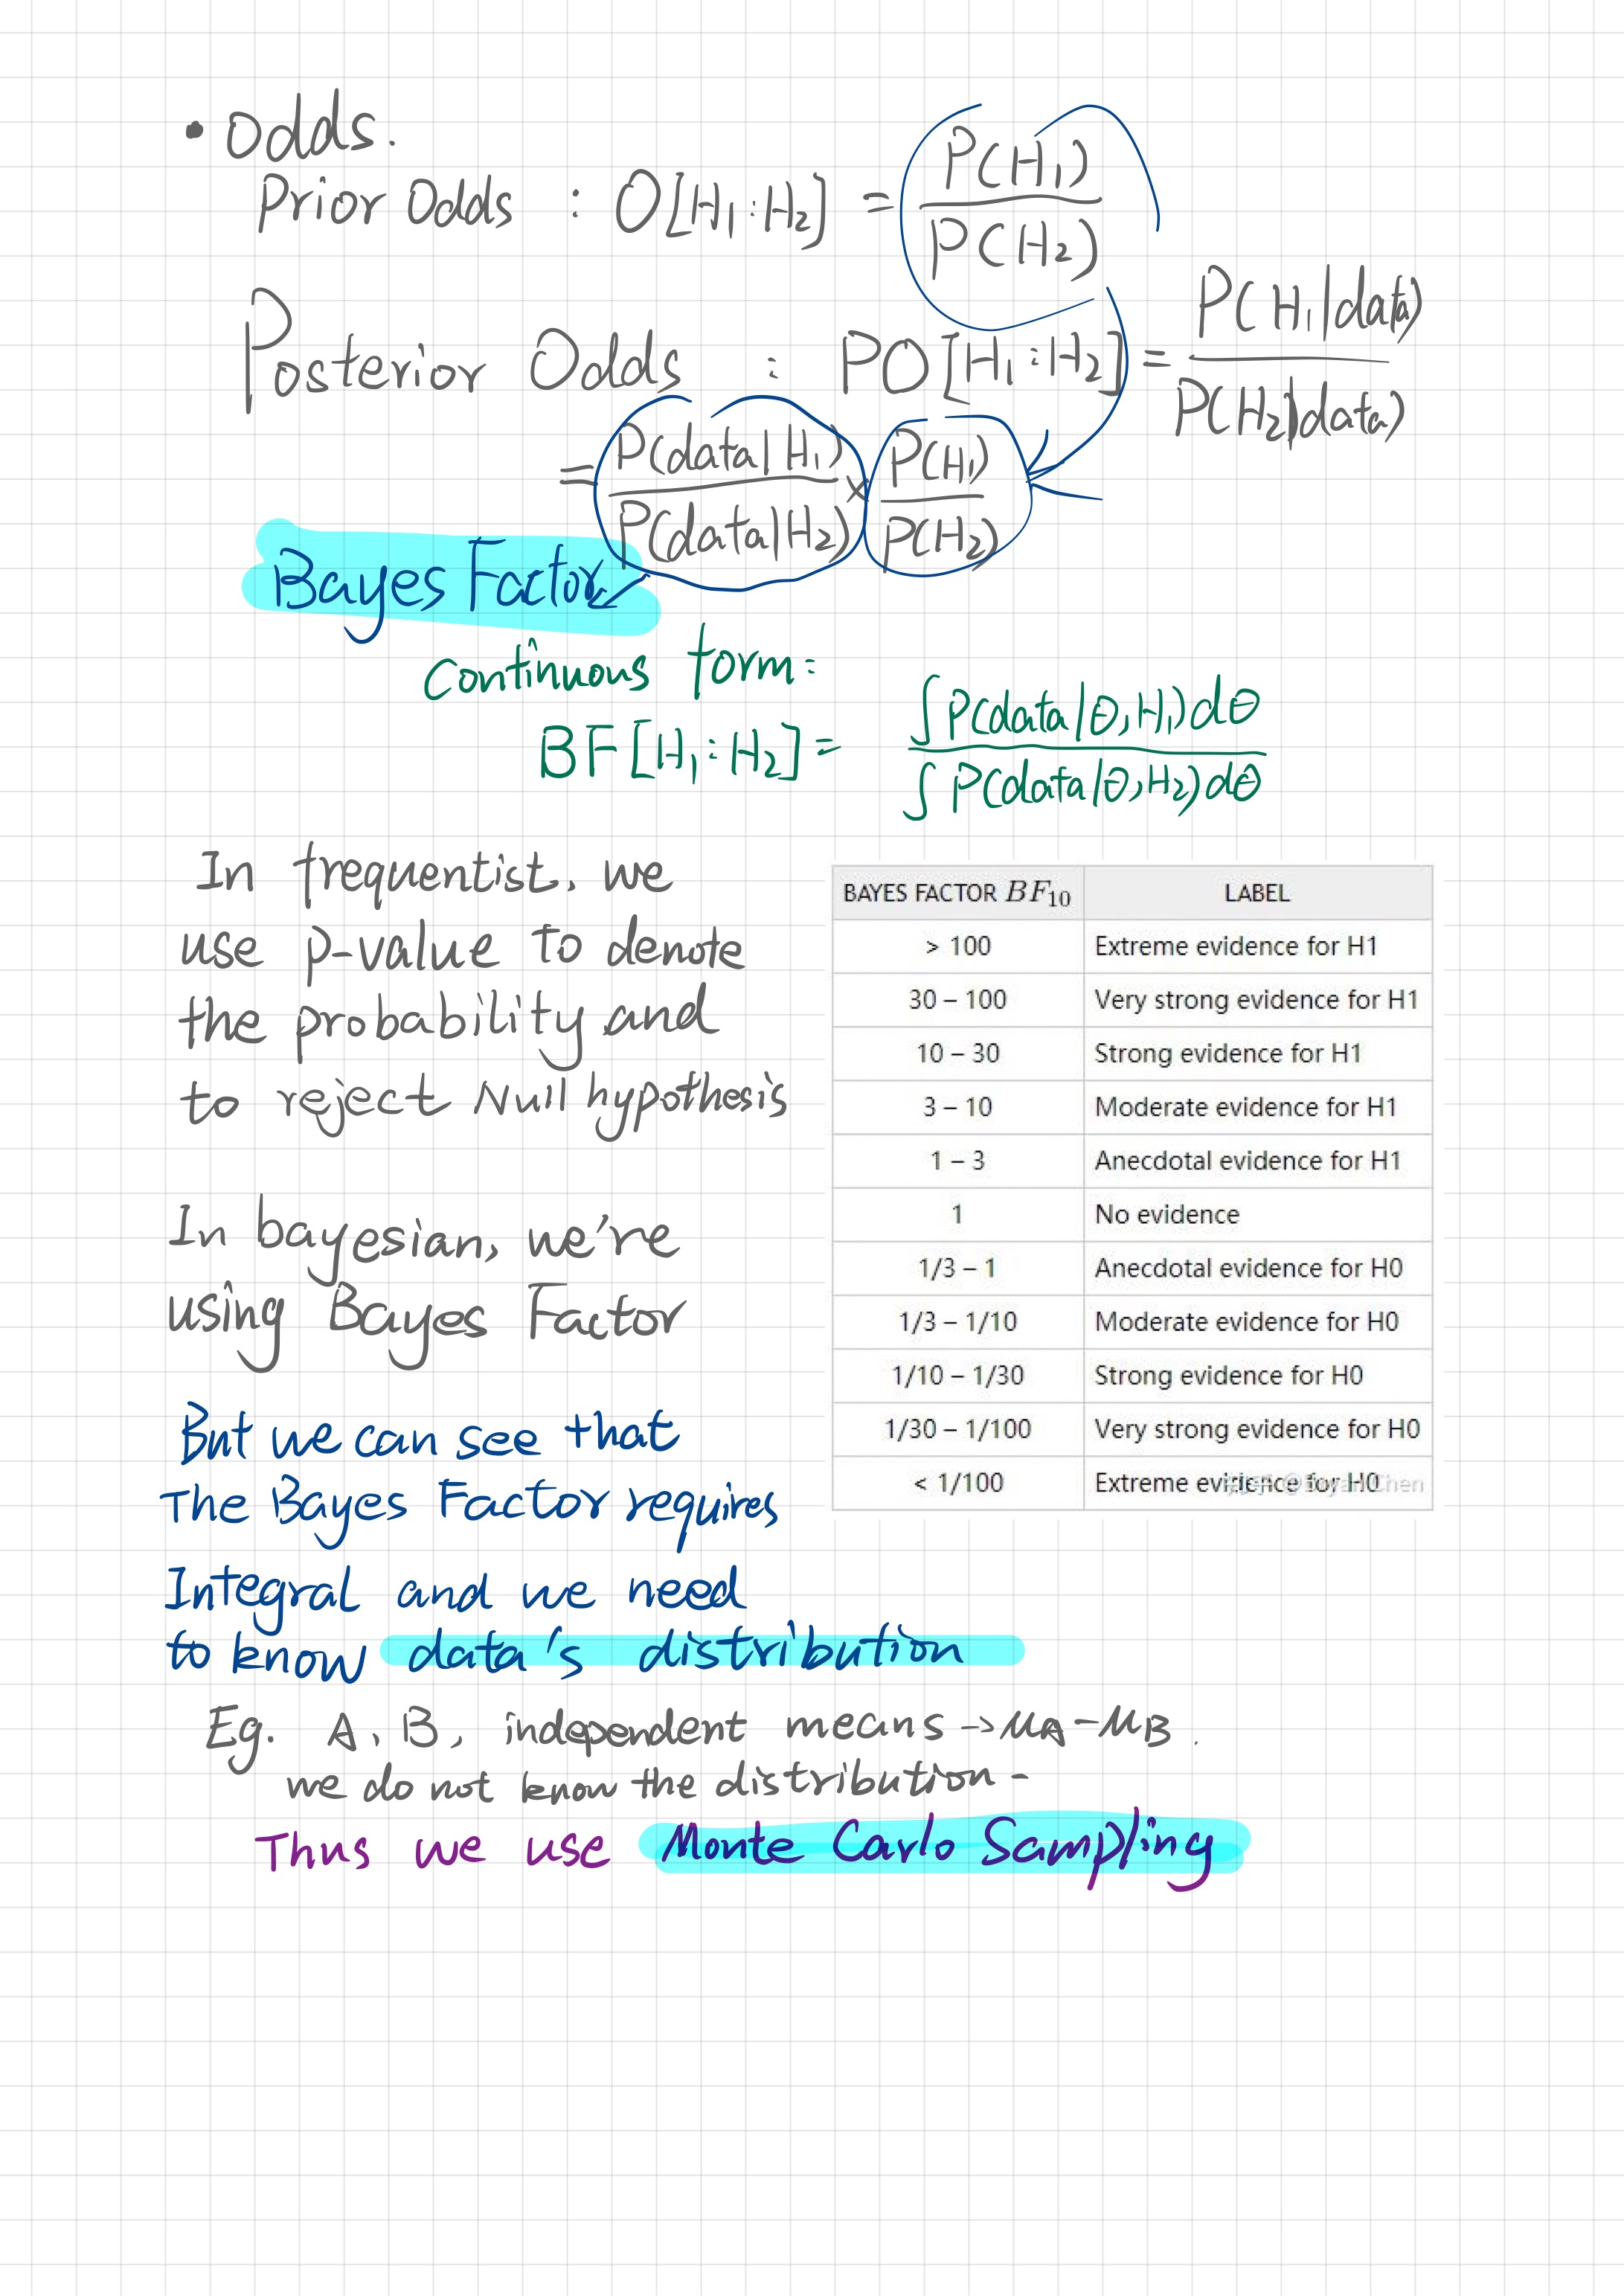 • Odds.
Prior Odds : O[H₁:H₂] = P(H₁) / P(H₂)
Posterior Odds : PO[H₁:H₂] = P(H₁|data) / P(H₂|data)
= P(data|H₁) / P(data|H₂) × P(H₁) / P(H₂)
Bayes Factor
Continuous form:
BF[H₁:H₂] = ∫P(data|θ,H₁)dθ / ∫P(data|θ,H₂)dθ
In frequentist. we
use p-value to denote
the probability and
to reject Null hypothesis
In bayesian, we're
using Bayes Factor
BAYES FACTOR BF₁₀ LABEL
> 100 Extreme evidence for H1
30 – 100 Very strong evidence for H1
10 – 30 Strong evidence for H1
3 – 10 Moderate evidence for H1
1 – 3 Anecdotal evidence for H1
1 No evidence
1/3 – 1 Anecdotal evidence for H0
1/3 – 1/10 Moderate evidence for H0
1/10 – 1/30 Strong evidence for H0
1/30 – 1/100 Very strong evidence for H0
< 1/100 Extreme evidence for H0
But we can see that
The Bayes Factor requires
Integral and we need
to know data's distribution
Eg. A, B, independent means → μA - μB.
we do not know the distribution -
Thus we use Monte Carlo Sampling